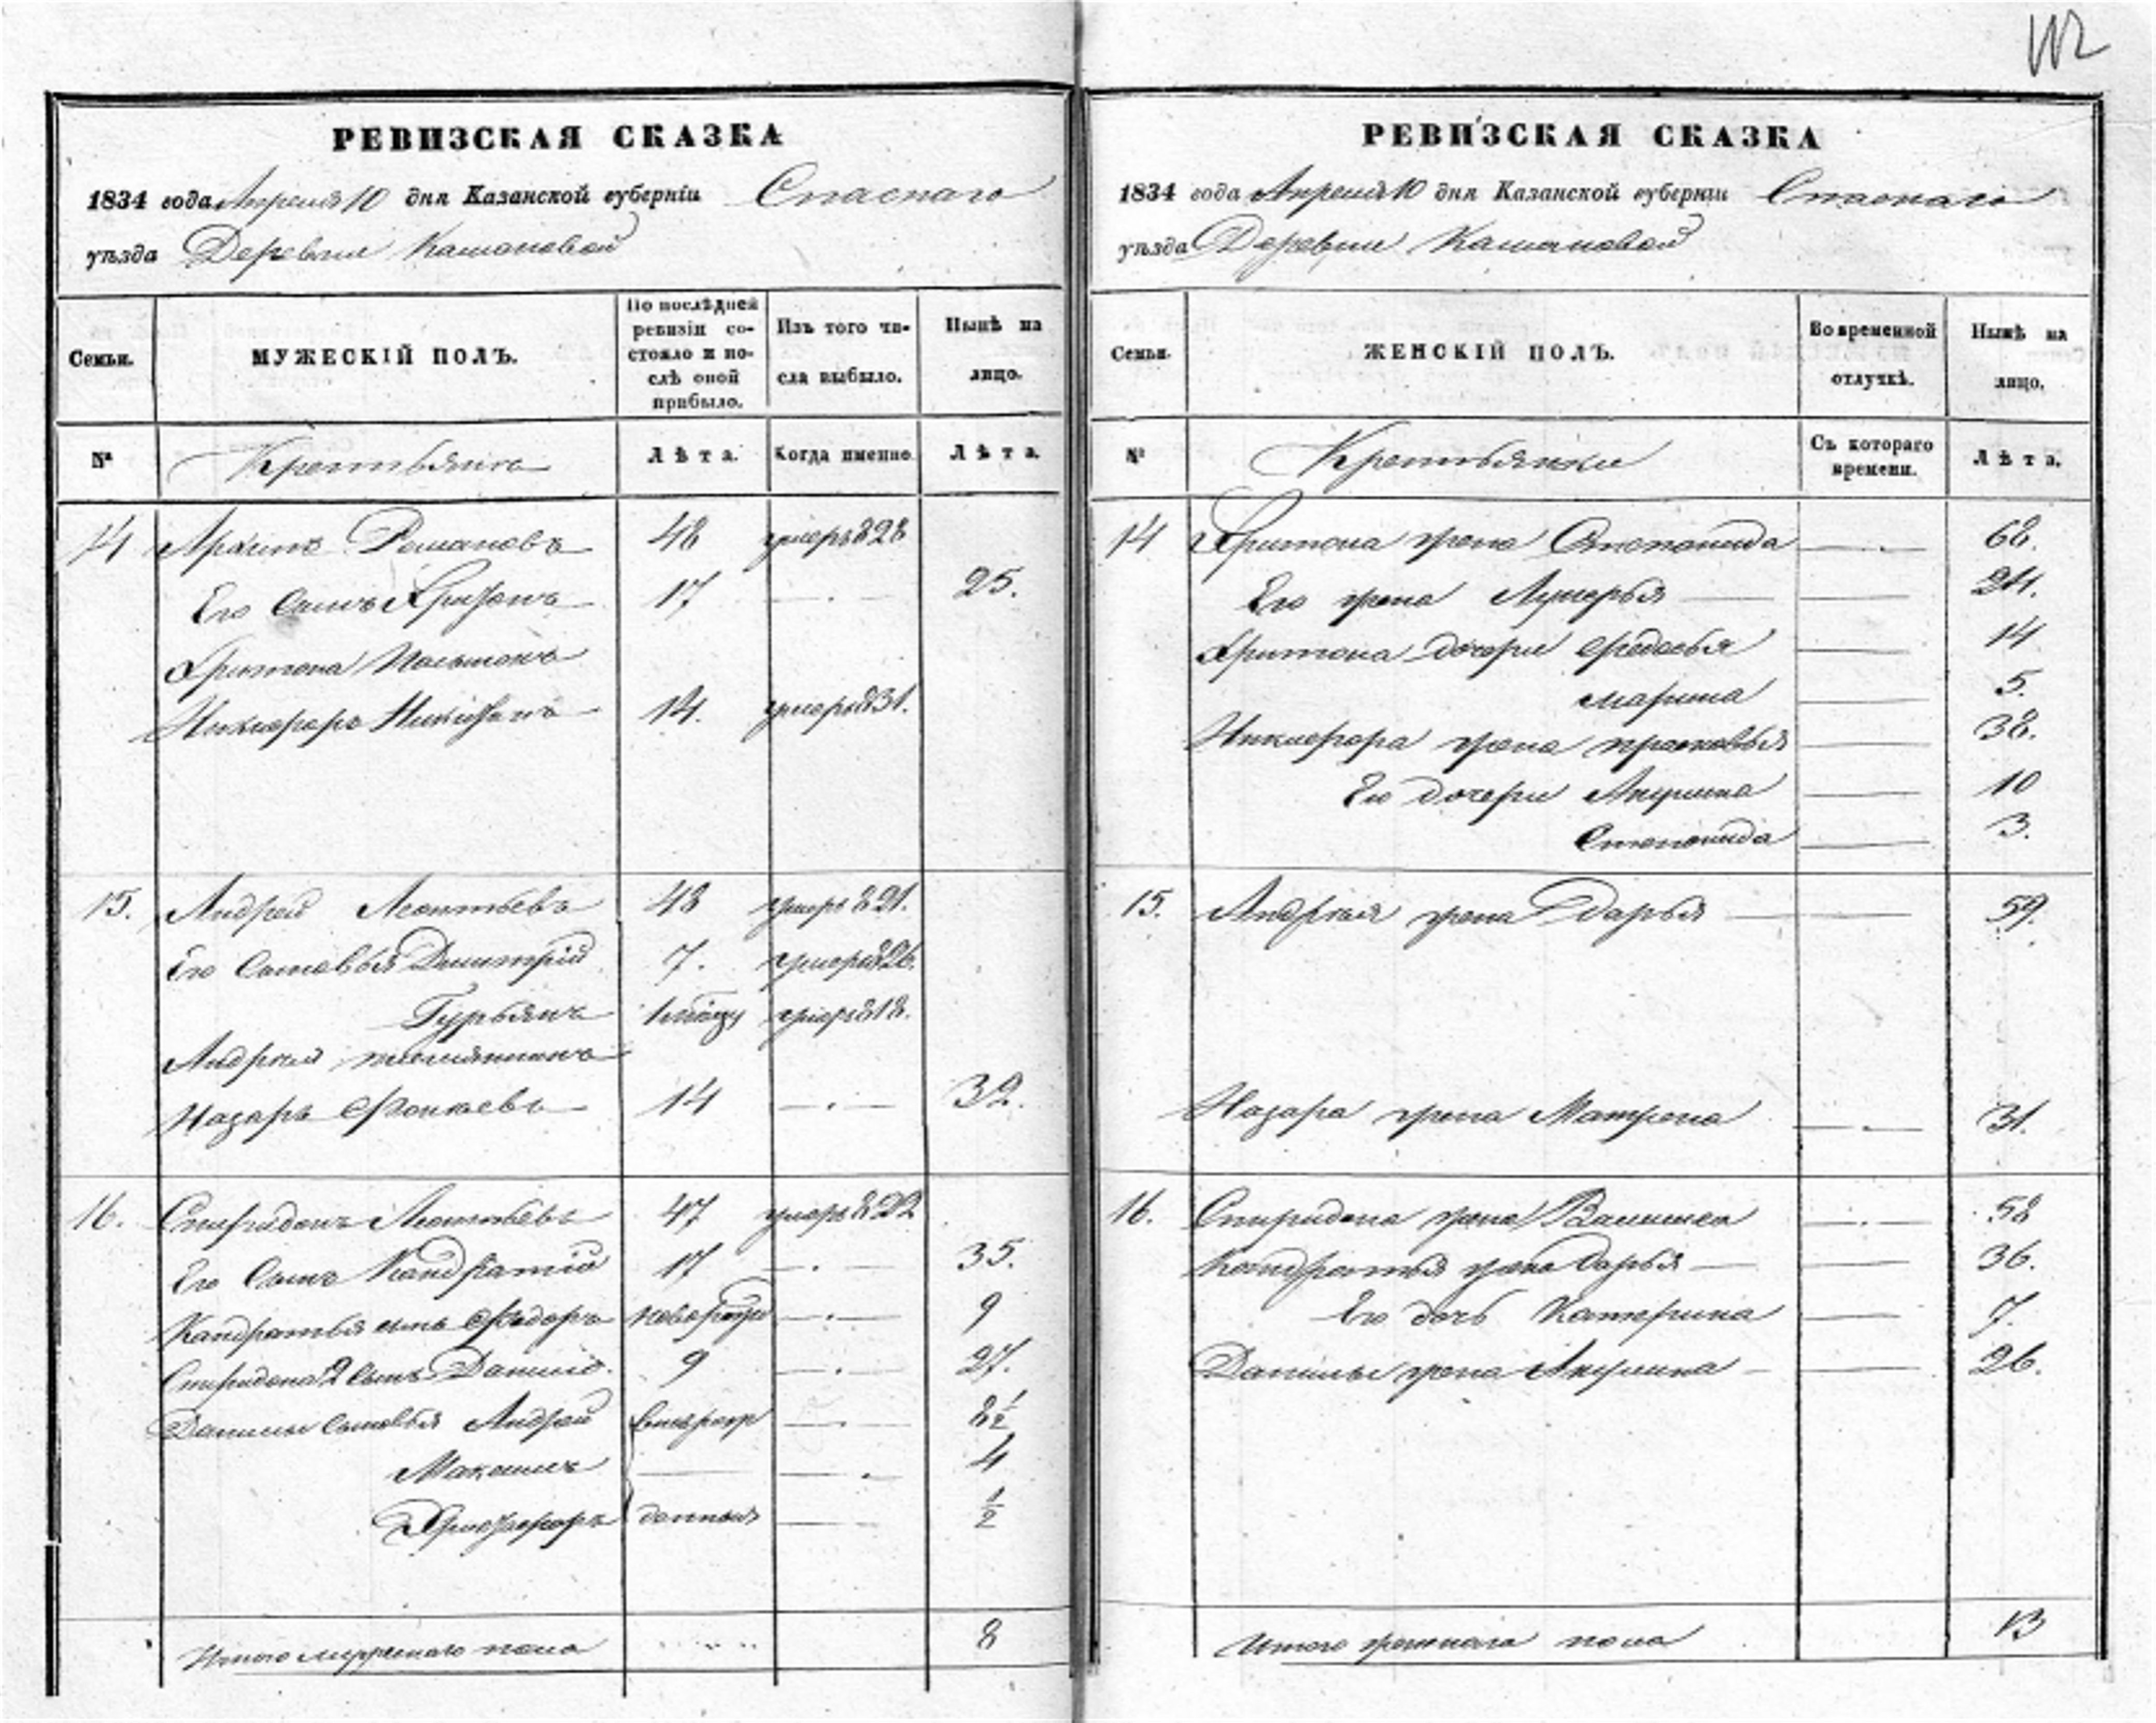 112
РЕВИЗСКАЯ СКАЗКА
1834 года Апреля 10 дня Казанской губерніи Спаскаго
уѣзда Деревни Кашановой
Семьи.
МУЖЕСКІЙ ПОЛЪ.
По послѣдней ревизіи состояло и послѣ оной прибыло.
Изъ того числа выбыло.
Нынѣ на лицо.
№
Крестьяне
Лѣта.
Когда именно.
Лѣта.
14 Романовъ 48 умеръ 828
Его сынъ 17 25.
племянникъ
Никифоръ 14. умеръ 831.
15. Андрей Леонтьевъ 48 умеръ 821.
Его сыновья Дмитрій 7. умеръ 826.
Гурьянъ умеръ 818.
Андрея племянникъ
Назаръ 14 32.
16. Спиридонъ Леонтьевъ 47 умеръ 822
Его сынъ Кандратій 17 35.
Кандратья сынъ Федоръ новорожд 9
Спиридона 2 сынъ Данило. 9 27.
Данилы сыновья Андрей 8½
Максимъ 4
½
Итого мужескаго пола 8
РЕВИЗСКАЯ СКАЗКА
1834 года Апреля 10 дня Казанской губерніи Спаскаго
уѣзда Деревни Кашановой
Семьи.
ЖЕНСКІЙ ПОЛЪ.
Во временной отлучкѣ.
Нынѣ на лицо.
№
Крестьянки
Съ котораго времени.
Лѣта.
14 жена Степанида 68.
Его жена Лукерья 24.
дочери Федосья 14
Марина 5.
Никифора жена Прасковья 38.
Его дочери Акулина 10
Степанида 3.
15. Андрея жена Дарья 59.
Назара жена Матрена 31.
16. Спиридона жена 58
Кандратья жена Дарья 36.
Его дочь Катерина 7.
Данилы жена Акулина 26.
Итого женскаго пола 13